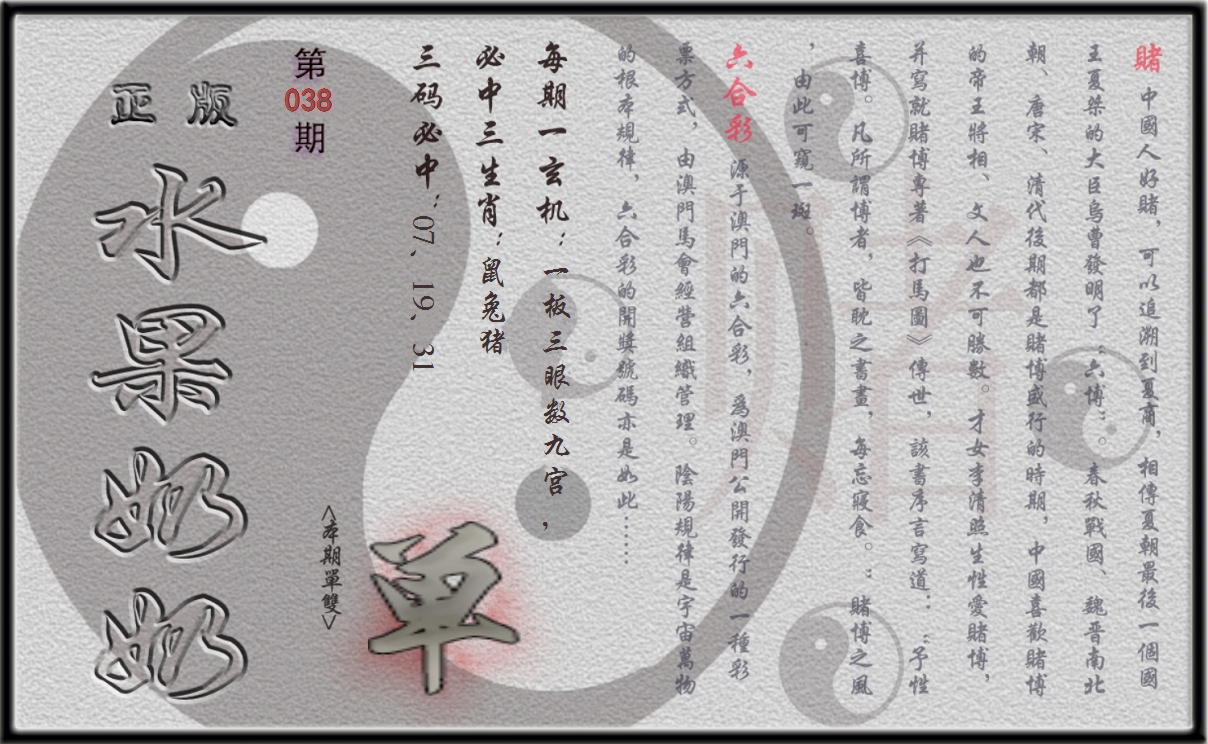 賭 中國人好賭，可以追溯到夏商，相傳夏朝最後一個國
王夏桀的大臣烏曹發明了“六博”。春秋戰國、魏晉南北
朝、唐宋、清代後期都是賭博盛行的時期，中國喜歡賭博
的帝王將相、文人也不可勝數。才女李清照生性愛賭博，
并寫就賭博專著《打馬圖》傳世，該書序言寫道：“予性
喜博。凡所謂博者，皆耽之書畫，每忘寢食。：賭博之風
，由此可窺一斑。
六合彩 源于澳門的六合彩，為澳門公開發行的一種彩
票方式，由澳門馬會經營組織管理。陰陽規律是宇宙萬物
的根本規律，六合彩的開獎號碼亦是如此……
每期一玄机：一板三眼数九宫，
必中三生肖：鼠兔猪
三码必中：07、19、31
<本期單雙>
單
第
038
期
正版
水果奶奶
赌